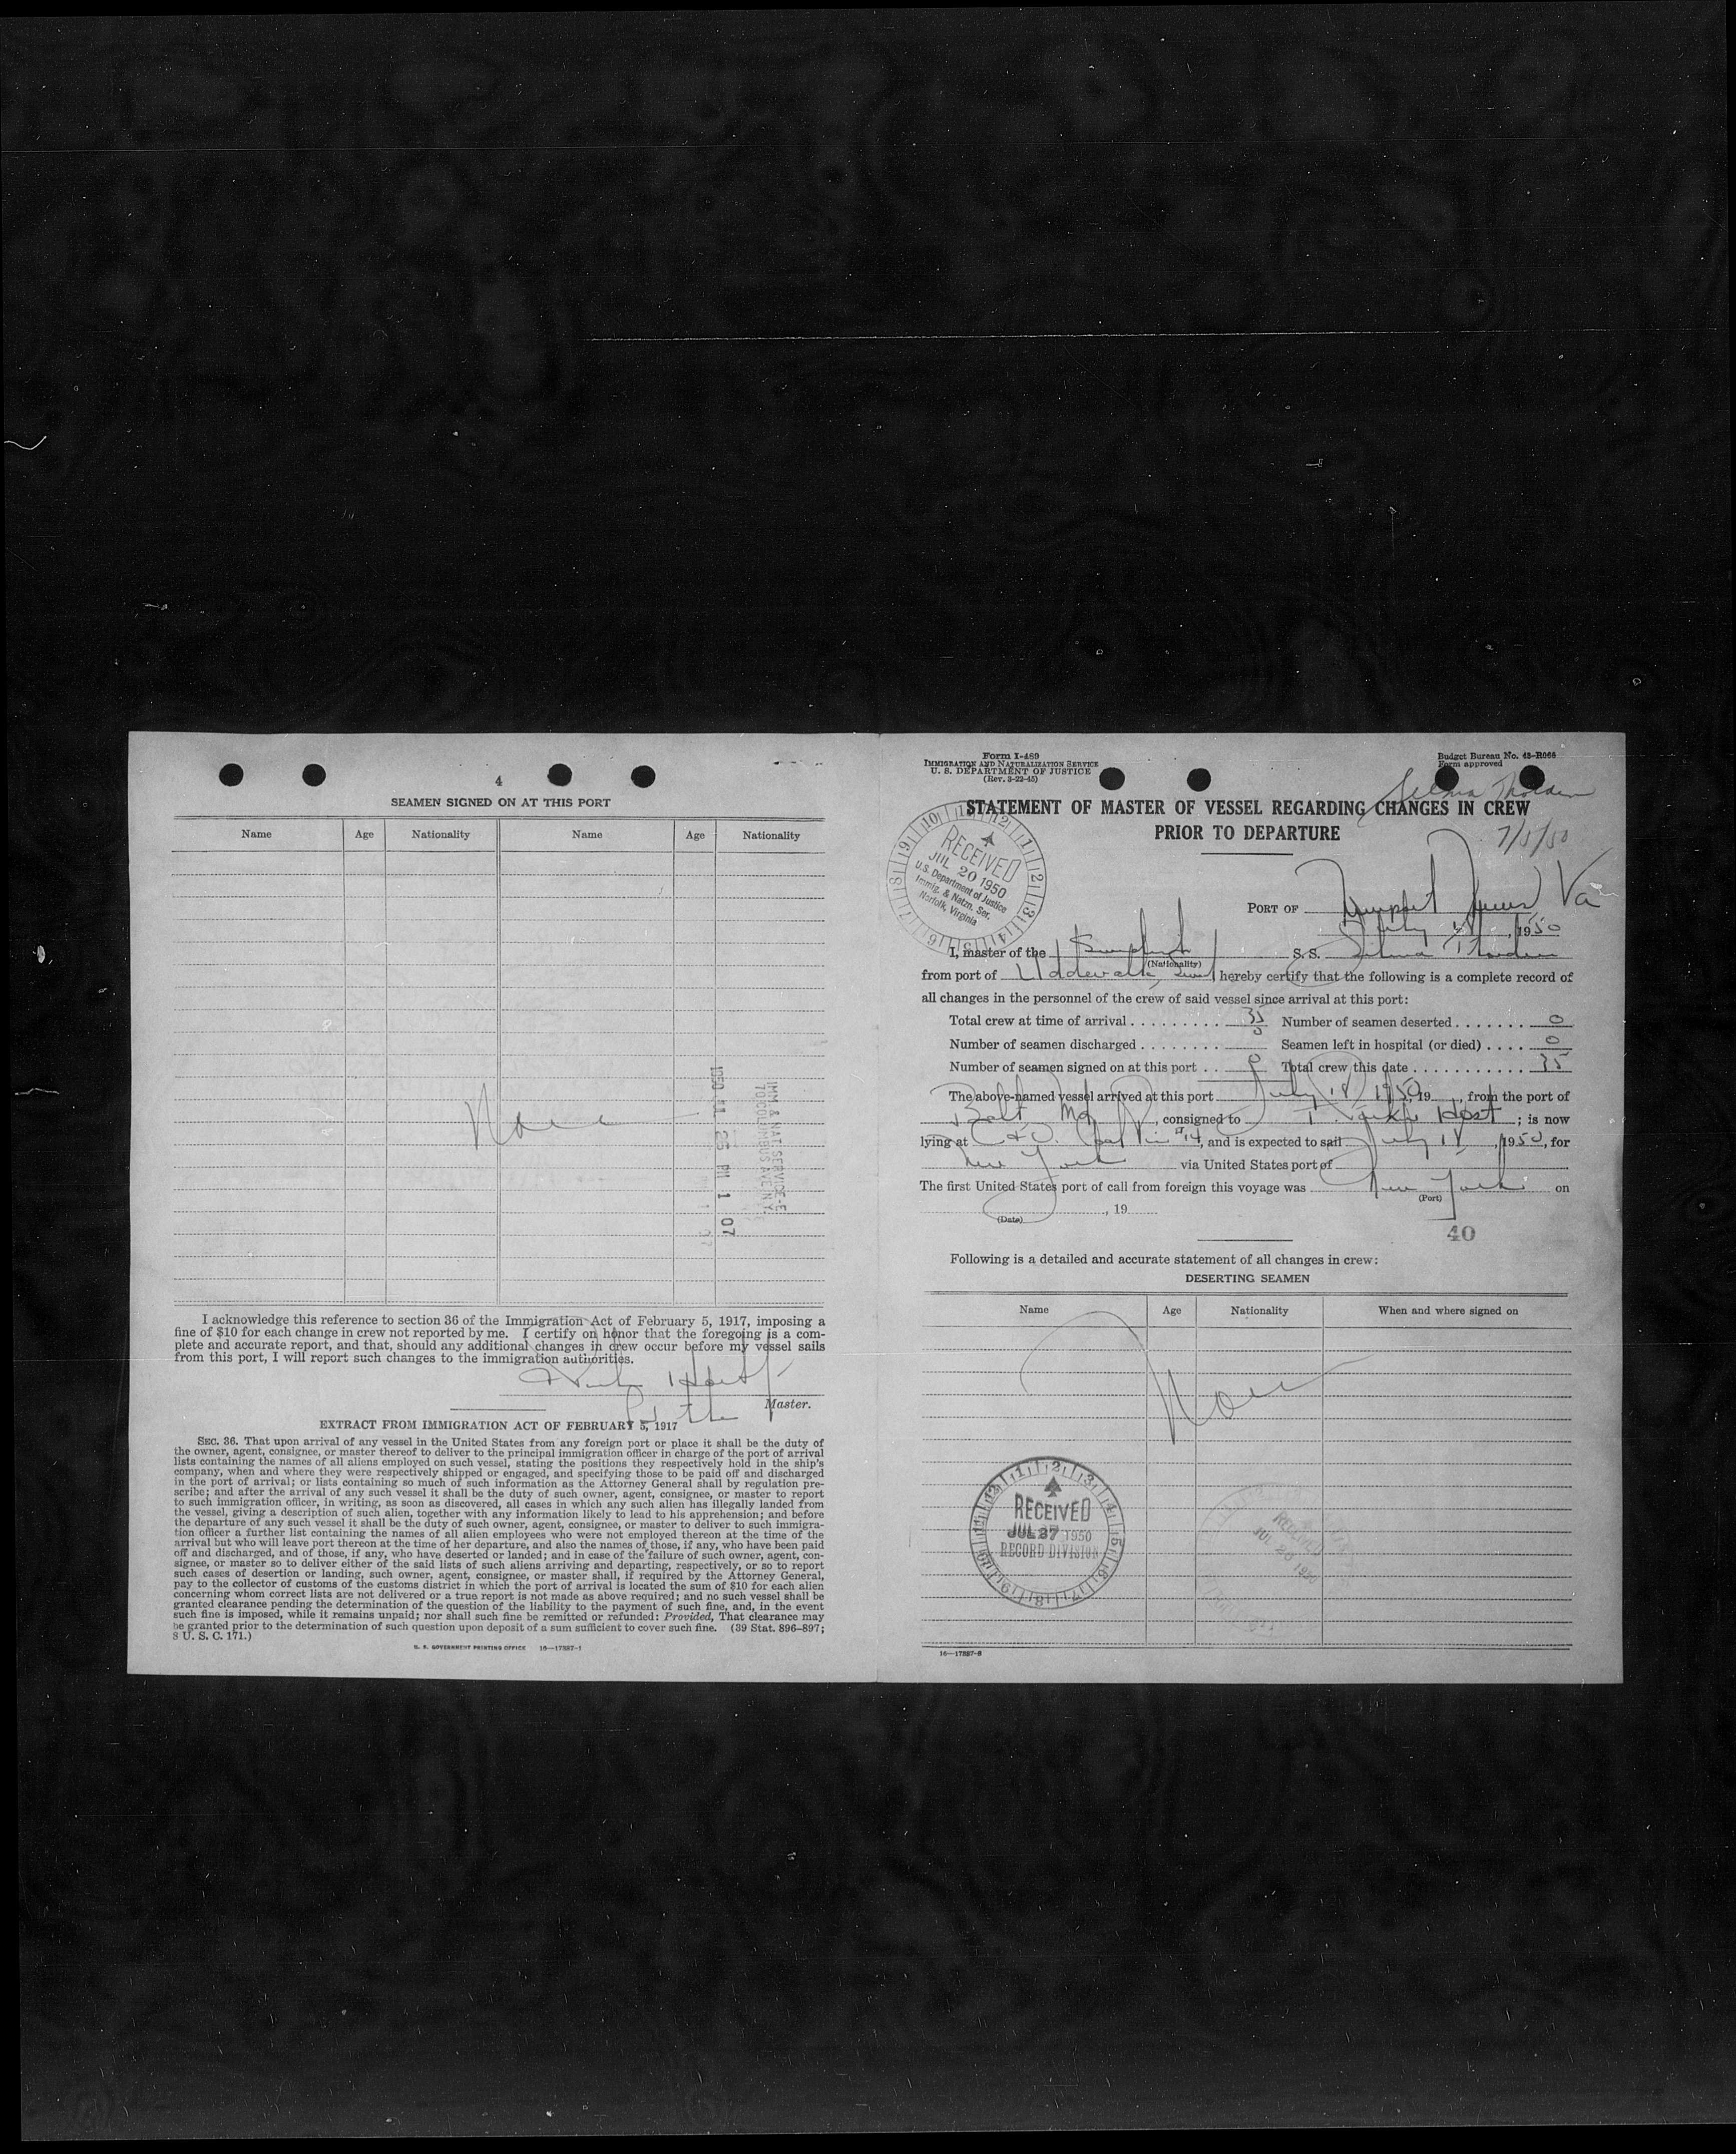 4
SEAMEN SIGNED ON AT THIS PORT
Name Age Nationality Name Age Nationality
None
IMM & NAT SERVICE-E
70 COLUMBUS AVE N.Y.
I acknowledge this reference to section 36 of the Immigration Act of February 5, 1917, imposing a
fine of $10 for each change in crew not reported by me. I certify on honor that the foregoing is a com-
plete and accurate report, and that, should any additional changes in crew occur before my vessel sails
from this port, I will report such changes to the immigration authorities.
Host
Master.
EXTRACT FROM IMMIGRATION ACT OF FEBRUARY 5, 1917
SEC. 36. That upon arrival of any vessel in the United States from any foreign port or place it shall be the duty of
the owner, agent, consignee, or master thereof to deliver to the principal immigration officer in charge of the port of arrival
lists containing the names of all aliens employed on such vessel, stating the positions they respectively hold in the ship's
company, when and where they were respectively shipped or engaged, and specifying those to be paid off and discharged
in the port of arrival; or lists containing so much of such information as the Attorney General shall by regulation pre-
scribe; and after the arrival of any such vessel it shall be the duty of such owner, agent, consignee, or master to report
to such immigration officer, in writing, as soon as discovered, all cases in which any such alien has illegally landed from
the vessel, giving a description of such alien, together with any information likely to lead to his apprehension; and before
the departure of any such vessel it shall be the duty of such owner, agent, consignee, or master to deliver to such immigra-
tion officer a further list containing the names of all alien employees who were not employed thereon at the time of the
arrival but who will leave port thereon at the time of her departure, and also the names of those, if any, who have been paid
off and discharged, and of those, if any, who have deserted or landed; and in case of the failure of such owner, agent, con-
signee, or master so to deliver either of the said lists of such aliens arriving and departing, respectively, or so to report
such cases of desertion or landing, such owner, agent, consignee, or master shall, if required by the Attorney General,
pay to the collector of customs of the customs district in which the port of arrival is located the sum of $10 for each alien
concerning whom correct lists are not delivered or a true report is not made as above required; and no such vessel shall be
granted clearance pending the determination of the question of the liability to the payment of such fine, and, in the event
such fine is imposed, while it remains unpaid; nor shall such fine be remitted or refunded: Provided, That clearance may
be granted prior to the determination of such question upon deposit of a sum sufficient to cover such fine. (39 Stat. 896–897;
8 U. S. C. 171.)
U. S. GOVERNMENT PRINTING OFFICE 16—17887-1
Form I-489
IMMIGRATION AND NATURALIZATION SERVICE
U. S. DEPARTMENT OF JUSTICE
(Rev. 3-22-45)
Budget Bureau No. 43-R066
Form approved
Selma Thorden
STATEMENT OF MASTER OF VESSEL REGARDING CHANGES IN CREW
PRIOR TO DEPARTURE
7/5/50
RECEIVED
JUL 20 1950
U.S. Department of Justice
Immig. & Natzn. Ser.
Norfolk, Virginia
PORT OF Newport News Va
July 18, 1950
I, master of the Swedish S. S. Selma Thorden
(Nationality)
from port of Uddevalla, Swed hereby certify that the following is a complete record of
all changes in the personnel of the crew of said vessel since arrival at this port:
Total crew at time of arrival 35 Number of seamen deserted 0
Number of seamen discharged 0 Seamen left in hospital (or died) 0
Number of seamen signed on at this port 0 Total crew this date 35
The above-named vessel arrived at this port July 18 1950, 19 , from the port of
Balt Md, consigned to T. Parker Host; is now
lying at C & O. Coal Pier #14, and is expected to sail July 18, 1950, for
New York via United States port of
The first United States port of call from foreign this voyage was New York on
(Port)
, 19
(Date)
40
Following is a detailed and accurate statement of all changes in crew:
DESERTING SEAMEN
Name Age Nationality When and where signed on
None
RECEIVED
JUL 27 1950
RECORD DIVISION
RECEIVED
JUL 28 1950
16—17887-3